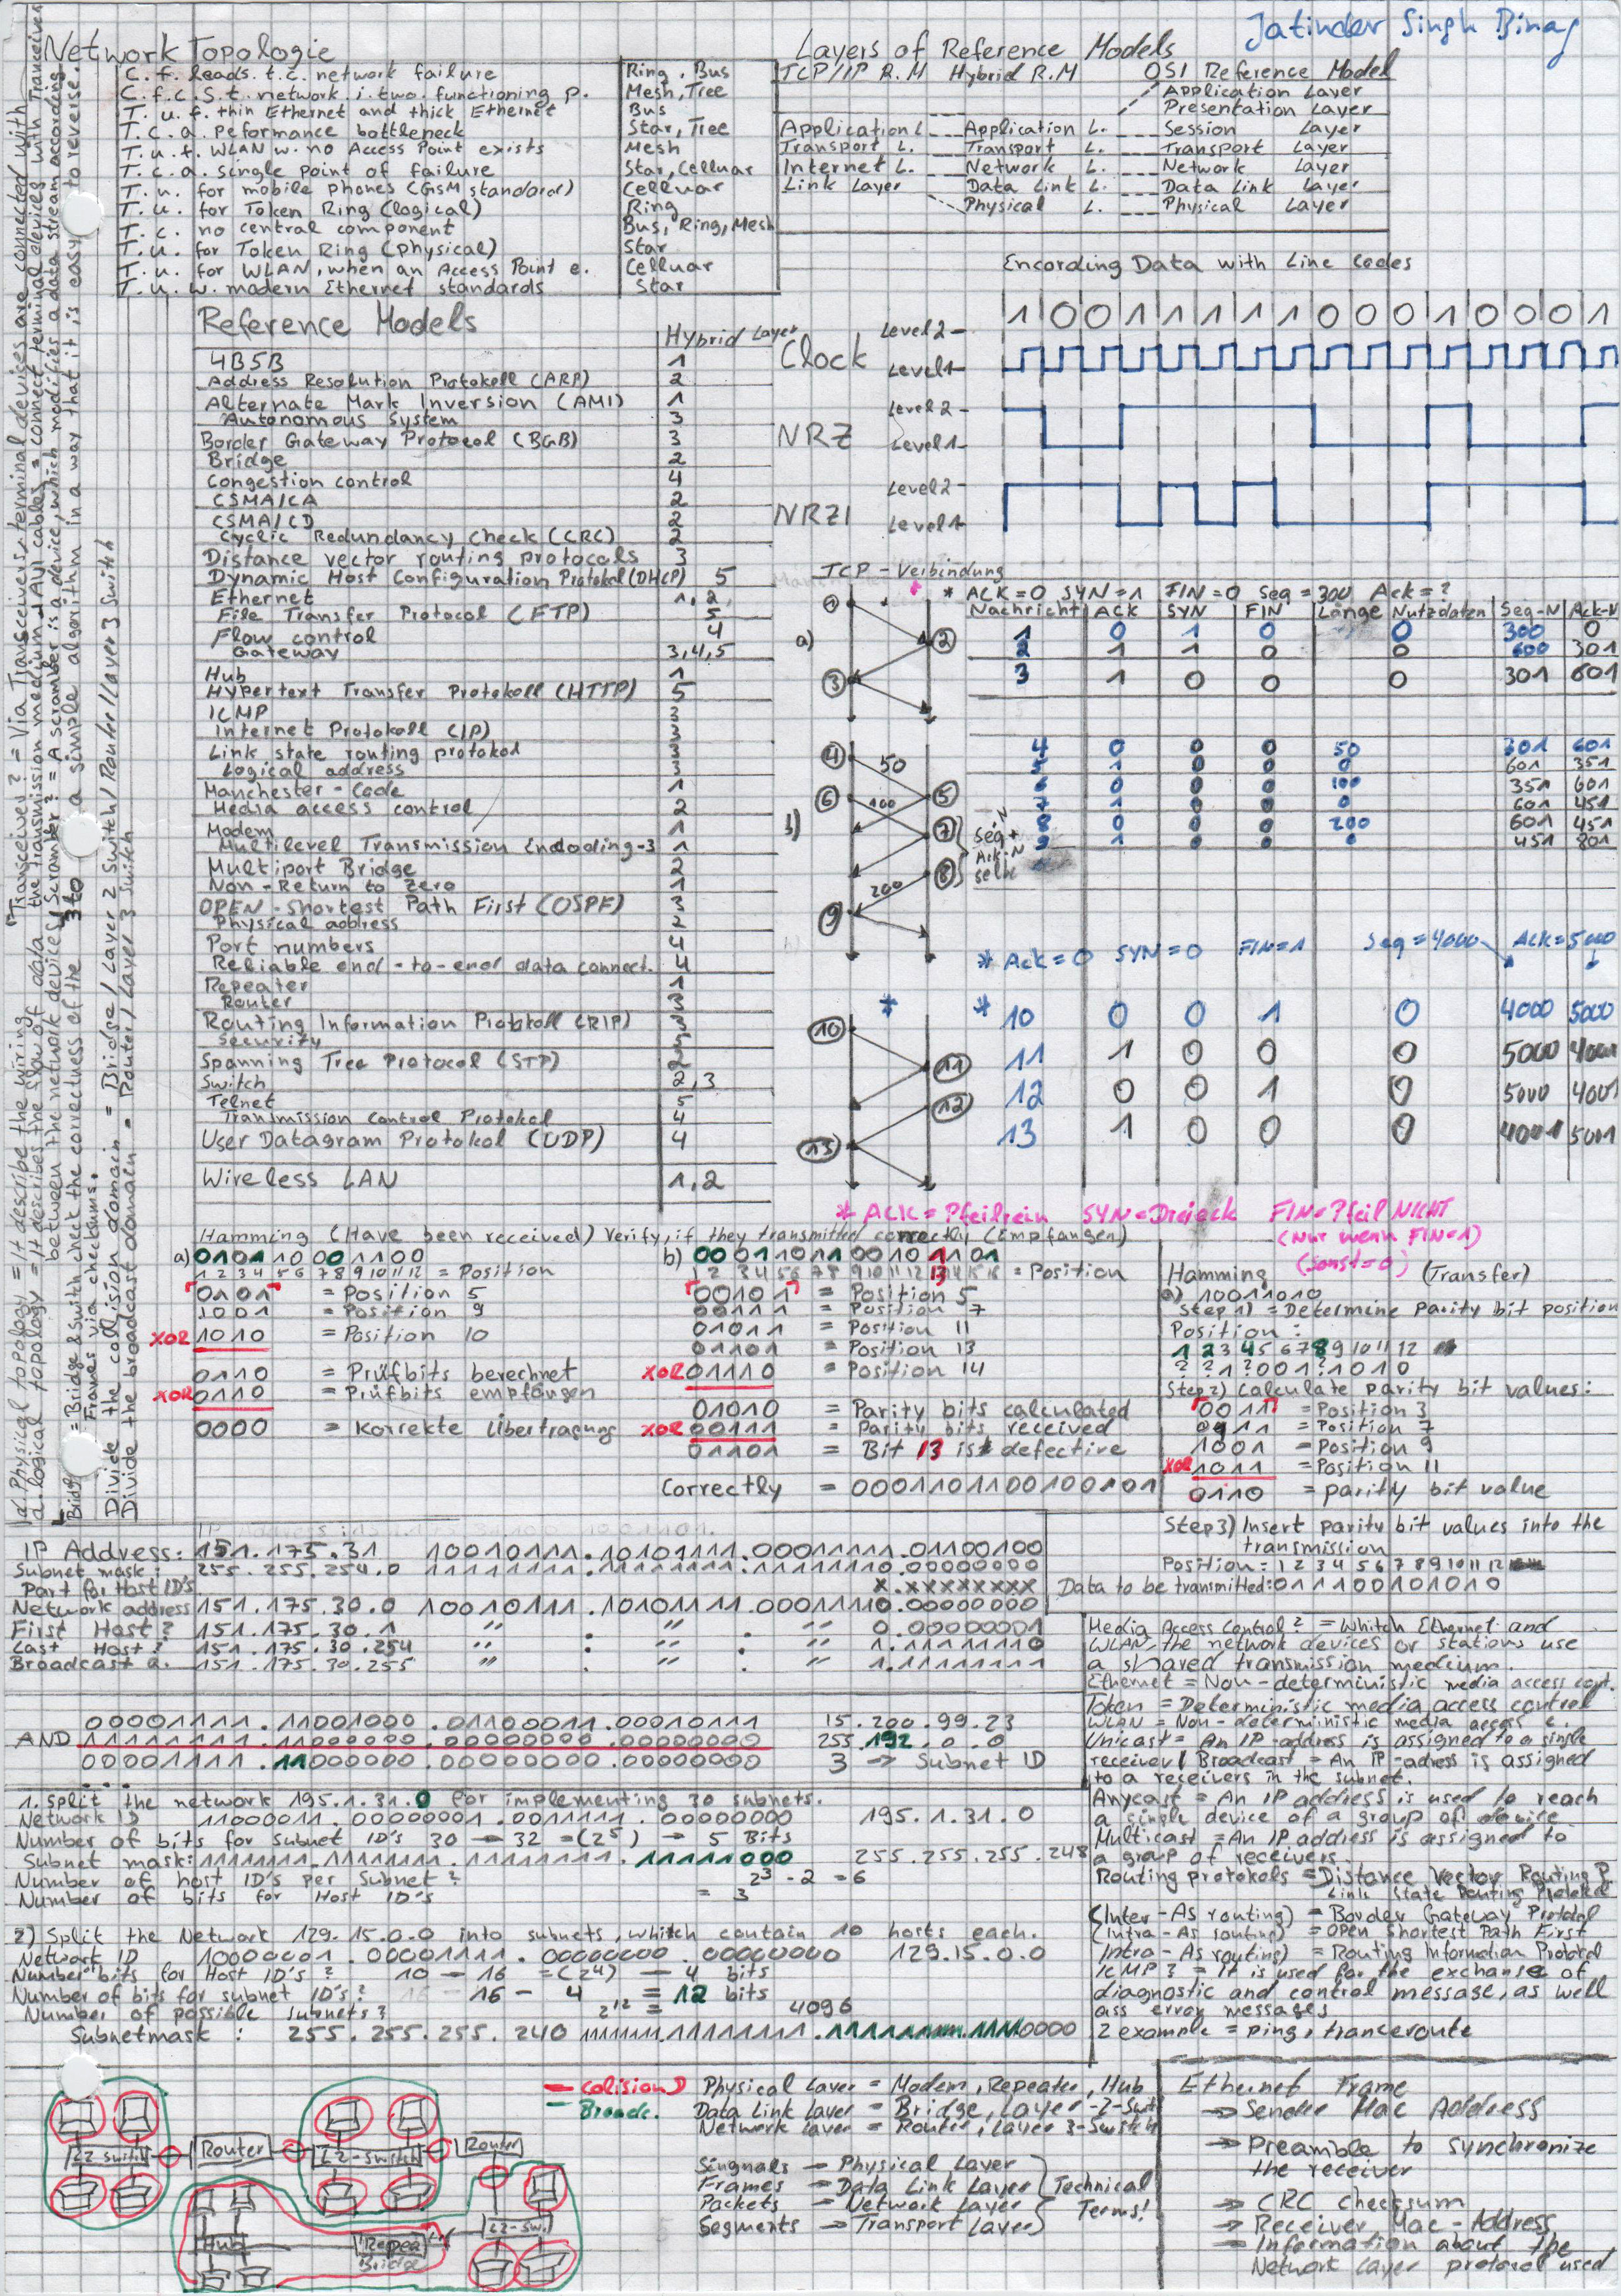 Jatinder Singh Binag
Network Topologie
C. f. leads. t. c. network failure Ring, Bus
C. f. c. s. t. network i. two functioning p. Mesh, Tree
T. u. f. thin Ethernet and thick Ethernet Bus
T. c. a. peformance bottleneck Star, Tree
T. u. f. WLAN w. no Access Point exists Mesh
T. c. a. single point of failure Star, Celluar
T. u. for mobile phones (GSM standard) Celluar
T. u. for Token Ring (logical) Ring
T. c. no central component Bus, Ring, Mesh
T. u. for Token Ring (physical) Star
T. u. for WLAN, when an Access Point e. Celluar
T. u. w. modern Ethernet standards Star
Layers of Reference Models
TCP/IP R.M Hybrid R.M OSI Reference Model
Application Layer
Presentation Layer
Application L. Application L. Session Layer
Transport L. Transport L. Transport Layer
Internet L. Network L. Network Layer
Link Layer Data Link L. Data Link Layer
Physical L. Physical Layer
Reference Models Hybrid Layer
4B5B 1
Address Resolution Protokoll (ARP) 2
Alternate Mark Inversion (AMI) 1
Autonomous System 3
Border Gateway Protocol (BGB) 3
Bridge 2
Congestion control 4
CSMA/CA 2
CSMA/CD 2
Cyclic Redundancy Check (CRC) 2
Distance vector routing protocals 3
Dynamic Host Configuration Protokol (DHCP) 5
Ethernet 1,2
File Transfer Protocol (FTP) 5
Flow control 4
Gateway 3,4,5
Hub 1
Hypertext Transfer Protokoll (HTTP) 5
ICMP 3
Internet Protokoll (IP) 3
Link state routing protokol 3
Logical address 3
Manchester-Code 1
Media access control 2
Modem 1
Multilevel Transmission Endoding-3 1
Multiport Bridge 2
Non-Return to Zero 1
OPEN-Shortest Path First (OSPF) 3
Physical address 2
Port numbers 4
Reliable end-to-end data connect. 4
Repeater 1
Router 3
Routing Information Protokoll (RIP) 3
Security
Spanning Tree Protocol (STP) 2
Switch 2,3
Telnet 5
Transmission Control Protokol 4
User Datagram Protokol (UDP) 4
Wireless LAN 1,2
Encording Data with Line Codes
1 0 0 1 1 1 1 1 0 0 0 1 0 0 0 1
Clock Level 2 Level 1
NRZ Level 2 Level 1
NRZI Level 2 Level 1
TCP-Verbindung
* ACK=0 SYN=1 FIN=0 Seq=300 Ack=?
Nachricht ACK SYN FIN Länge Nutzdaten Seq-N Ack-N
a)
1 0 1 0 0 300 0
2 1 1 0 0 600 301
3 1 0 0 0 301 601
b)
4 0 0 0 50 301 601
5 1 0 0 0 601 351
6 0 0 0 100 351 601
7 1 0 0 0 601 451
8 0 0 0 200 601 451
9 1 0 0 0 451 801
50
100
200
Seq + Ack-N selbe
* Ack=0 SYN=0 FIN=1 Seq=4000 Ack=5000
10 0 0 1 0 4000 5000
11 1 0 0 0 5000 4001
12 0 0 1 0 5000 4001
13 1 0 0 0 4001 5001
* ACK=Pfeilrein SYN=Dreieck FIN=Pfeil NICHT
(Nur wenn FIN=1)
(sonst=0)
Hamming (Have been received) Verify, if they transmitted correctly (Empfangen)
a) 010110001100
1 2 3 4 5 6 7 8 9 10 11 12 = Position
0101 = Position 5
1001 = Position 9
XOR 1010 = Position 10
0110 = Prüfbits berechnet
XOR 0110 = Prüfbits empfangen
0000 = Korrekte Übertragung
b) 0001101100101101
1 2 3 4 5 6 7 8 9 10 11 12 13 14 15 16 = Position
00101 = Position 5
00111 = Position 7
01011 = Position 11
01101 = Position 13
XOR 01110 = Position 14
01010 = Parity bits calculated
XOR 00111 = Parity bits received
01101 = Bit 13 is defective
Correctly = 0001101100100101
Hamming (Transfer)
a) 10011010
Step 1) = Determine parity bit position
Position:
1 2 3 4 5 6 7 8 9 10 11 12
? ? 1 ? 0 0 1 ? 1 0 1 0
Step 2) Calculate parity bit values:
0011 = Position 3
0111 = Position 7
1001 = Position 9
XOR 1011 = Position 11
0110 = parity bit value
Step 3) Insert parity bit values into the
transmission
Position: 1 2 3 4 5 6 7 8 9 10 11 12
Data to be transmitted: 011100101010
IP Address: 151.175.31 10010111.10101111.00011111.01100100
Subnet mask: 255.255.254.0 11111111.11111111.11111110.00000000
Part for Host ID's x.xxxxxxxx
Network address 151.175.30.0 10010111.10101111.00011110.00000000
First Host? 151.175.30.1 " . " . " 0.00000001
Last Host? 151.175.30.254 " . " . " 1.11111110
Broadcast a. 151.175.30.255 " . " . " 1.11111111
00001111.11001000.01100011.00010111 15.200.99.23
AND 11111111.11000000.00000000.00000000 255.192.0.0
00001111.11000000.00000000.00000000 3 → Subnet ID
1. Split the network 195.1.31.0 for implementing 30 subnets.
Network ID 11000011.00000001.0011111.00000000 195.1.31.0
Number of bits for subnet ID's 30 → 32 = (2⁵) → 5 Bits
Subnet mask: 11111111.11111111.11111111.11111000 255.255.255.248
Number of host ID's per Subnet? 2³ - 2 = 6
Number of bits for Host ID's = 3
2) Split the Network 129.15.0.0 into subnets, whitch contain 10 hosts each.
Network ID 10000001.00001111.00000000.00000000 129.15.0.0
Number bits for Host ID's? 10 → 16 = (2⁴) → 4 bits
Number of bits for subnet ID's? 16 - 4 = 12 bits
Number of possible subnets? 2¹² = 4096
Subnetmask: 255.255.255.240 11111111.11111111.11111111.11110000
Media Access Control? = Whitch Ethernet and
WLAN, the network devices or stations use
a shared transmission medium.
Ethernet = Non-deterministic media access cont.
Token = Deterministic media access control
WLAN = Non-deterministic media access c.
Unicast = An IP-address is assigned to a single
receiver / Broadcast = An IP-adress is assigned
to a receivers in the subnet.
Anycast = An IP address is used to reach
a single device of a group of device
Multicast = An IP address is assigned to
a group of receivers.
Routing protokols = Distance Vector Routing P.
Link State Routing Protokol
(Inter-As routing) = Border Gateway Protokol
(Intra-As routing) = Open Shortest Path First
Intra-As routing) = Routing Information Protokol
ICMP? = It is used for the exchanse of
diagnostic and control message, as well
ass error messages
2 example = ping, tranceroute
Colision D
Broadc.
L2-switch Router L2-switch Router
Hub Repea Bridge L2-Sw.
Physical Layer = Modem, Repeater, Hub
Data Link Layer = Bridge, Layer-2-Swit
Network Layer = Router, Layer 3-Switch
Singnals → Physical Layer
Frames → Data Link Layer
Packets → Network Layer
Segments → Transport Layer
Technical Terms!
Ethernet Frame
→ Sender Mac Address
→ Preamble to synchronize
the receiver
→ CRC checksum
→ Receiver Mac-Address
→ Information about the
Network layer protocol used
Transceiver? = Via Transceivers, terminal devices are connected with
the transmission medium. AUI cables = connect terminal devices with Tranceiver
Scramber? = A scrambler is a device, which modifies a data stream according
to a simple algorithm in a way that it is easy to reverse.
a. Physical topology = It describe the wiring
a. logical topology = It describes the flow of data
between the network devices
Bridge = Bridge & Switch check the correctness of the
Frames via checksums.
Divide the collision domain = Bridge / Layer 2 Switch / Router / Layer 3 Switch
Divide the broadcast domain = Router, Layer 3 Switch